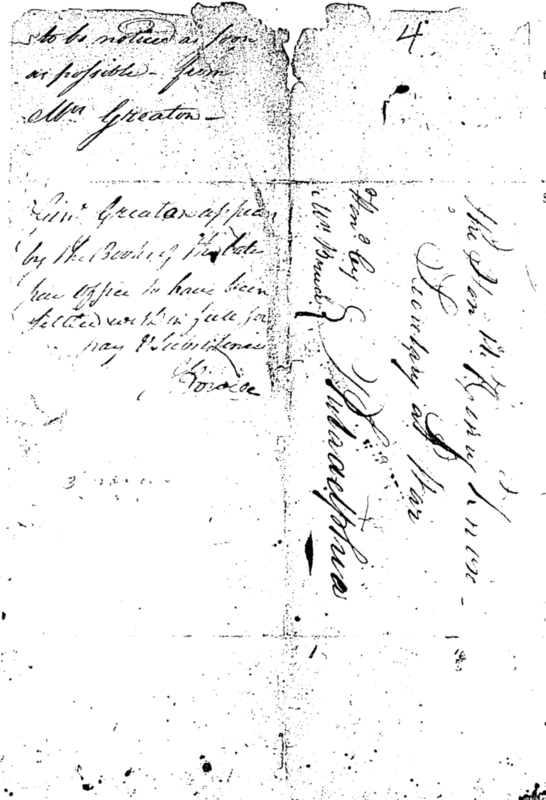 to be noticed as soon
as possible - from
Mrs Greaton -
4
Genl Greaton appears
by the Books of the late
pay office to have been
settled with in full for
pay & Subsistence
The Honble Henry Knox -
Secretary at War
Philadelphia
Hond by
Mr